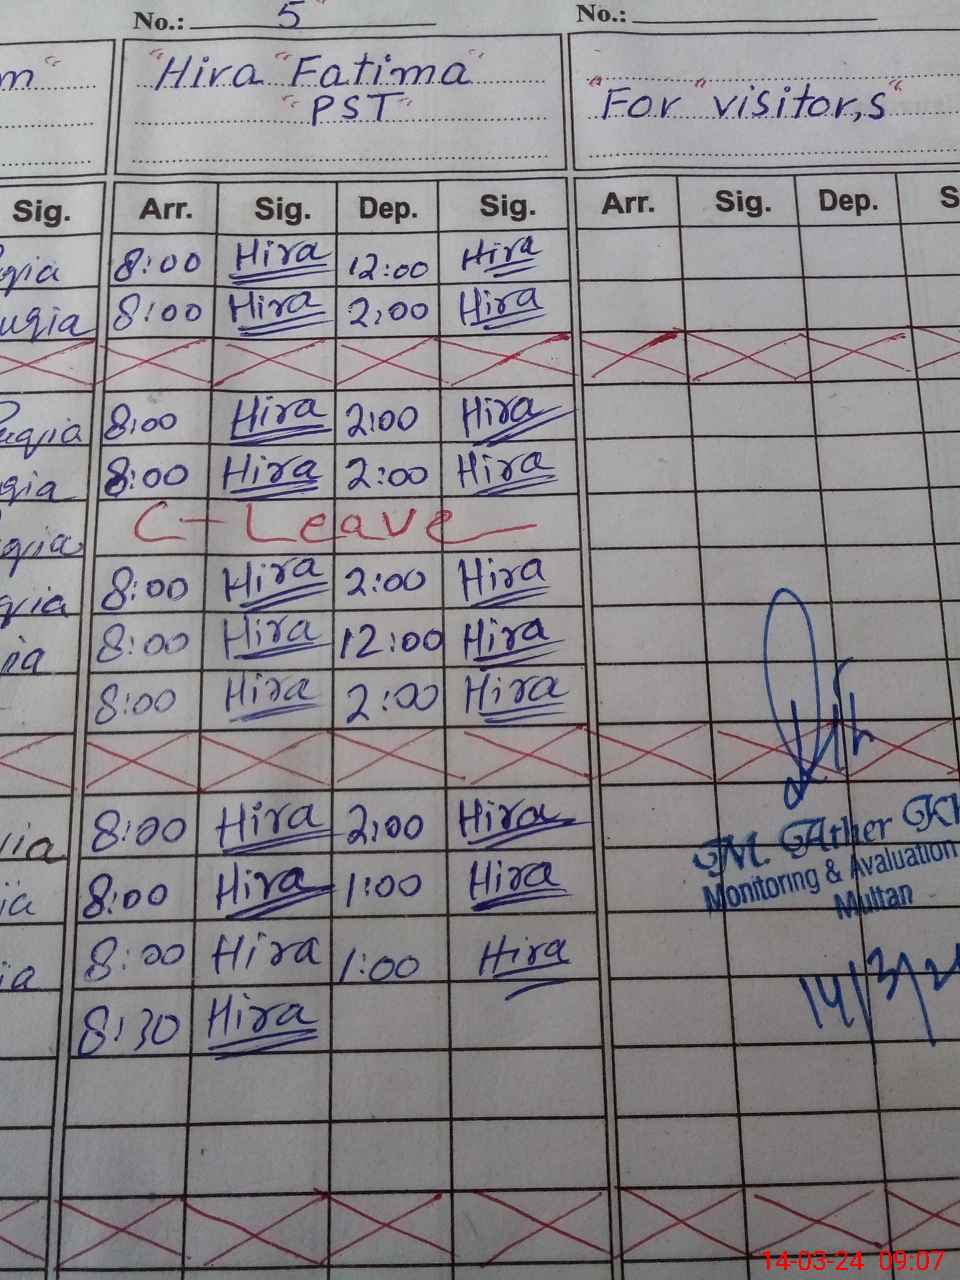 No.: 5 No.:
"Hira "Fatima" "For" visitor,s"
"PST"
Sig. Arr. Sig. Dep. Sig. Arr. Sig. Dep.
8:00 Hira 12:00 Hira
8:00 Hira 2:00 Hira
8:00 Hira 2:00 Hira
8:00 Hira 2:00 Hira
C-Leave
8:00 Hira 2:00 Hira
8:00 Hira 12:00 Hira
8:00 Hira 2:00 Hira
8:00 Hira 2:00 Hira
M. Ather
8:00 Hira 1:00 Hira
Monitoring & Avaluation
Multan
8:00 Hira 1:00 Hira
14/3/2
8:30 Hira
14-03-24 09:07